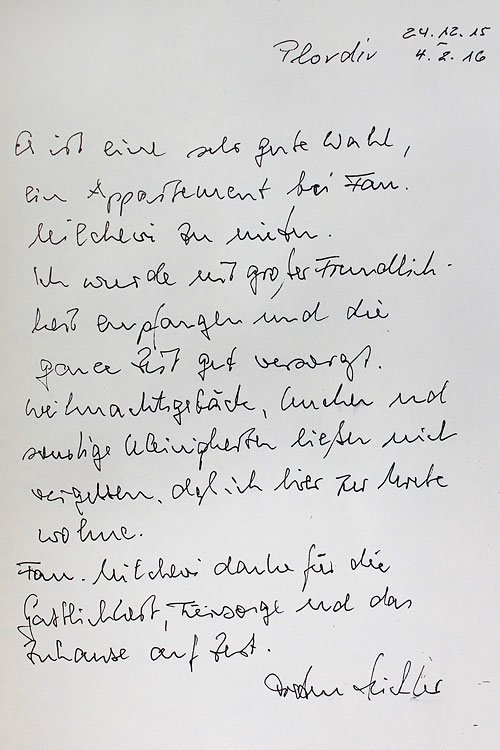 Plovdiv 24.12.15
– 4.2.16
Es ist eine sehr gute Wahl,
ein Appartement bei Fam.
Milchevi zu mieten.
Ich wurde mit großer Freundlich-
keit empfangen und die
ganze Zeit gut versorgt.
Weihnachtsgebäck, Kuchen und
sonstige Kleinigkeiten ließen mich
vergessen, daß ich hier zur Miete
wohne.
Fam. Milchevi danke für die
Gastlichkeit, Fürsorge und das
Zuhause auf Zeit.